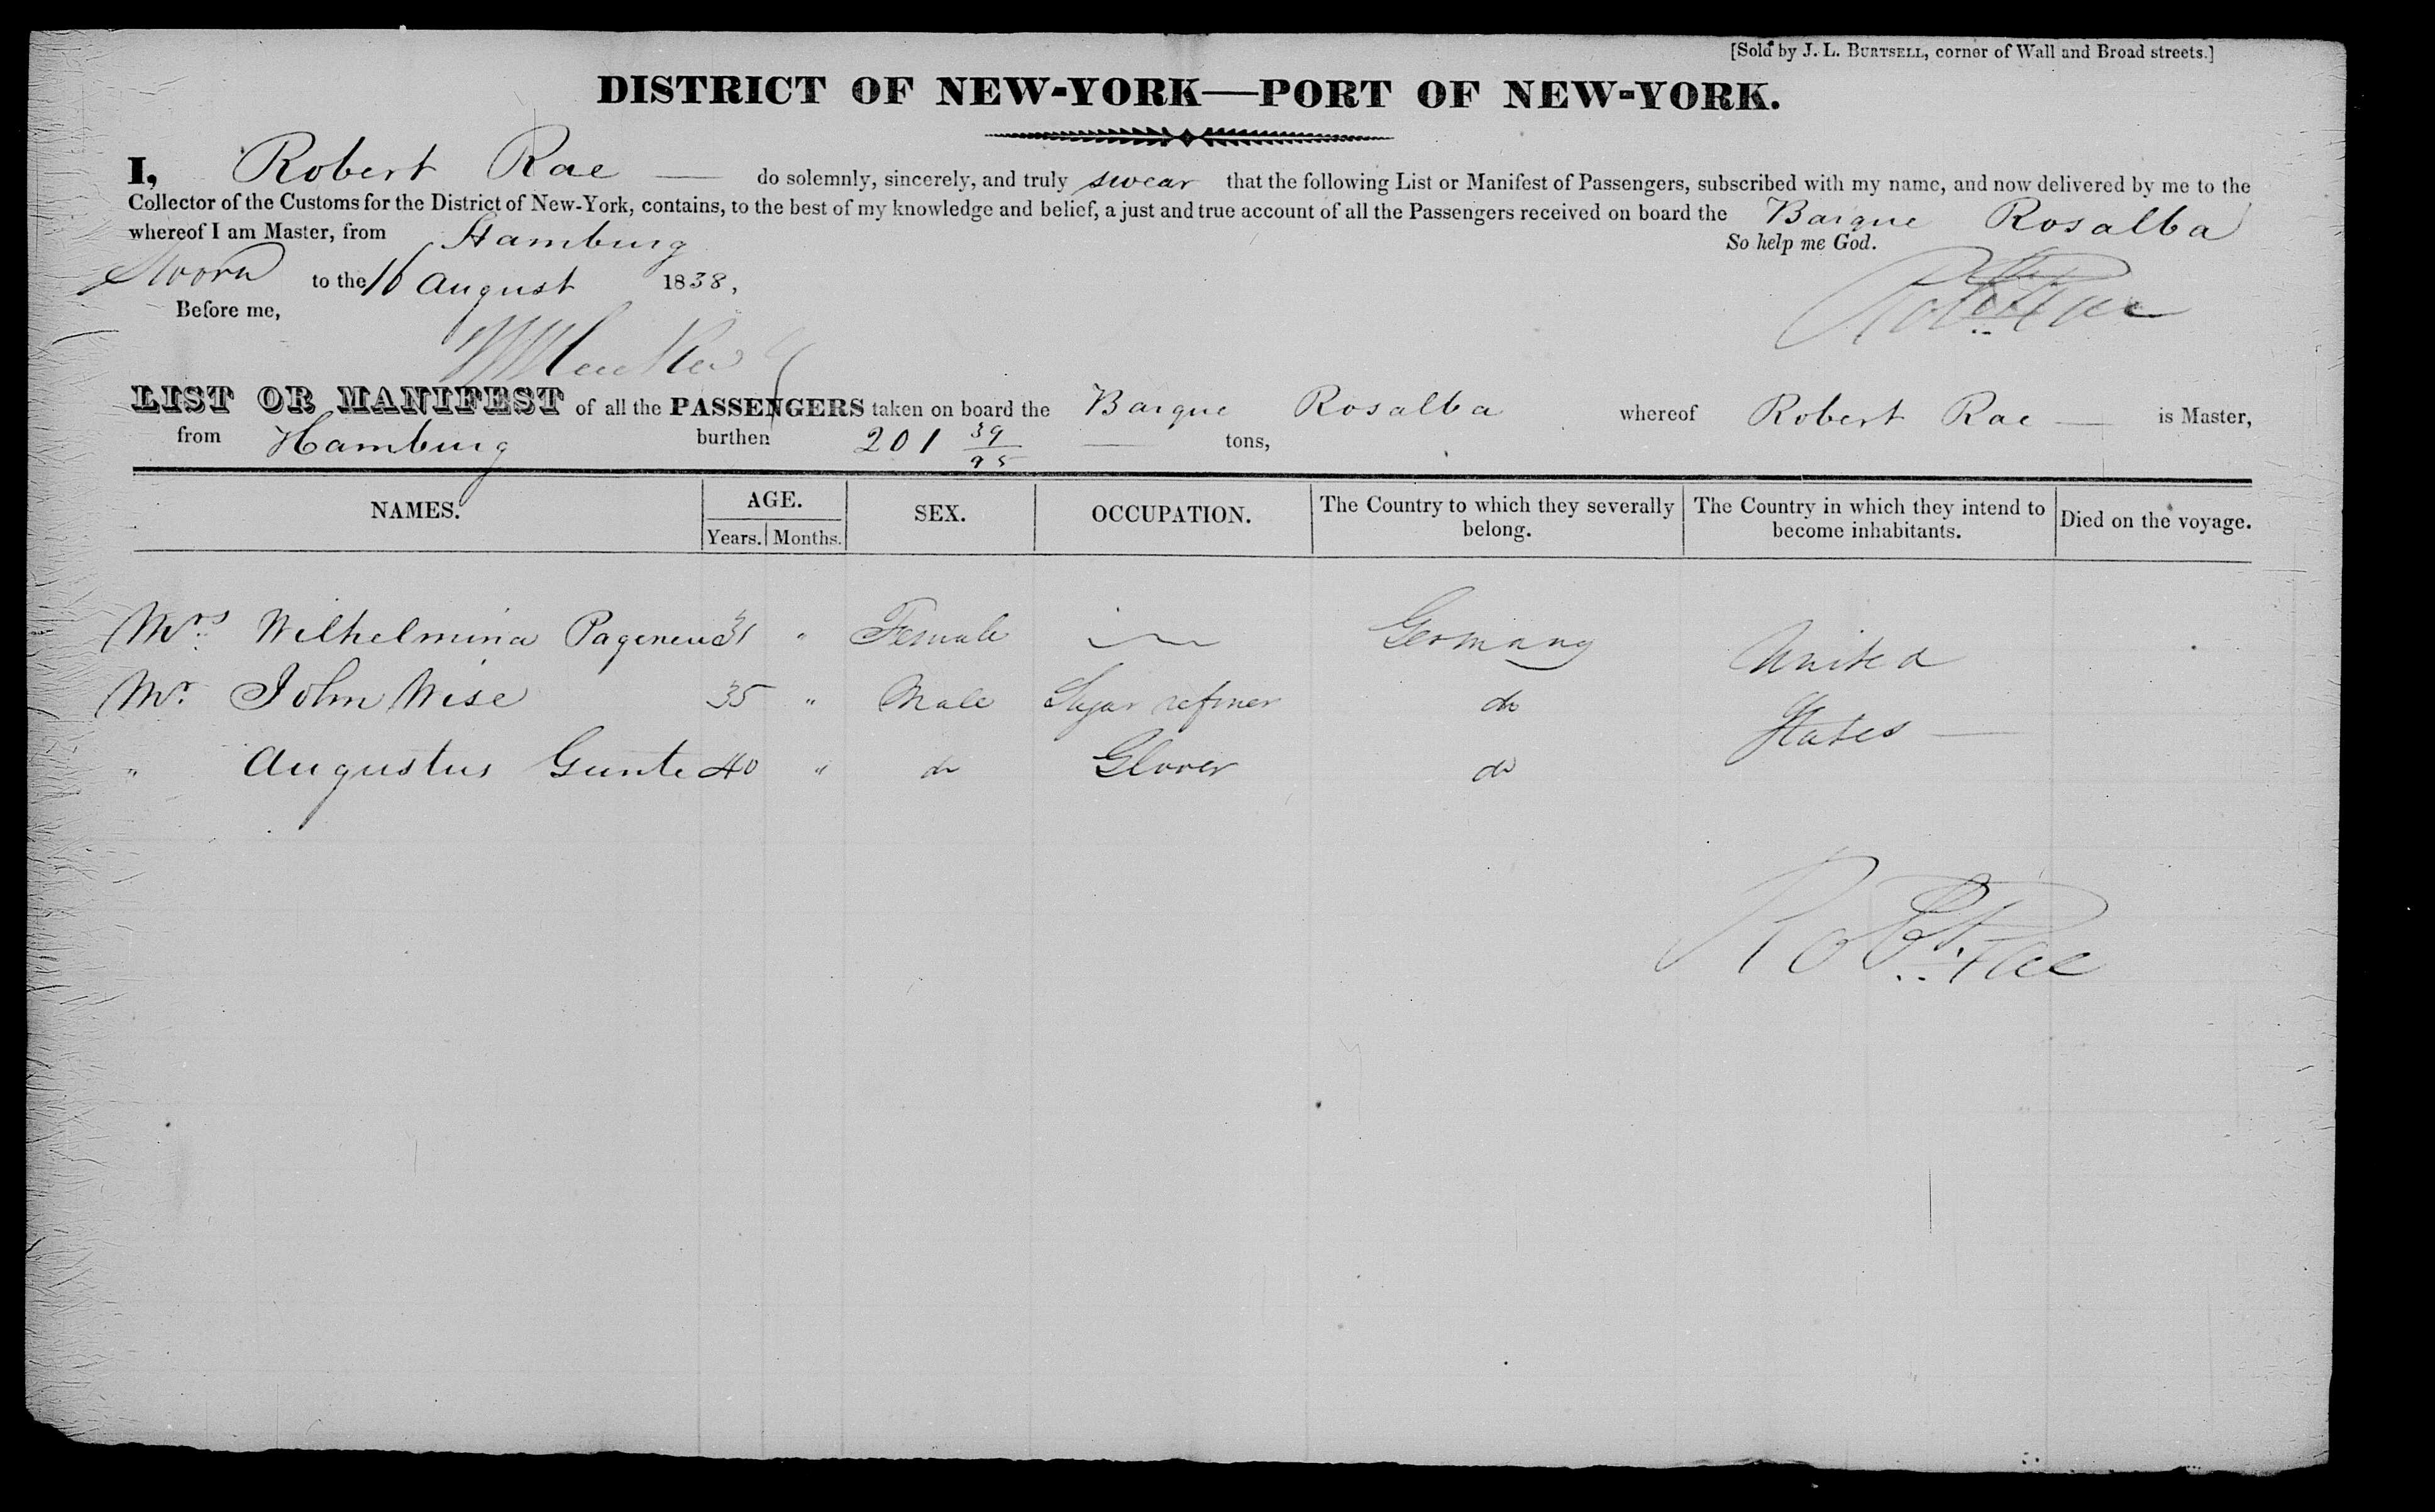 [Sold by J. L. BURTSELL, corner of Wall and Broad streets.]
DISTRICT OF NEW-YORK—PORT OF NEW-YORK.
I, Robert Rae — do solemnly, sincerely, and truly swear that the following List or Manifest of Passengers, subscribed with my name, and now delivered by me to the
Collector of the Customs for the District of New-York, contains, to the best of my knowledge and belief, a just and true account of all the Passengers received on board the Barque Rosalba
whereof I am Master, from Hamburg So help me God.
Sworn to the 16 August 1838, Robt Rae
Before me,
LIST OR MANIFEST of all the PASSENGERS taken on board the Barque Rosalba whereof Robert Rae — is Master,
from Hamburg burthen 201 39/95 — tons,
NAMES. AGE. Years. Months. SEX. OCCUPATION. The Country to which they severally belong. The Country in which they intend to become inhabitants. Died on the voyage.
Mrs. Wilhelmina 31 " Female — Germany United
Mr. John Wise 35 " Male Sugar refiner do States —
" Augustus Gunte 40 " do Glover do
Robt. Rae